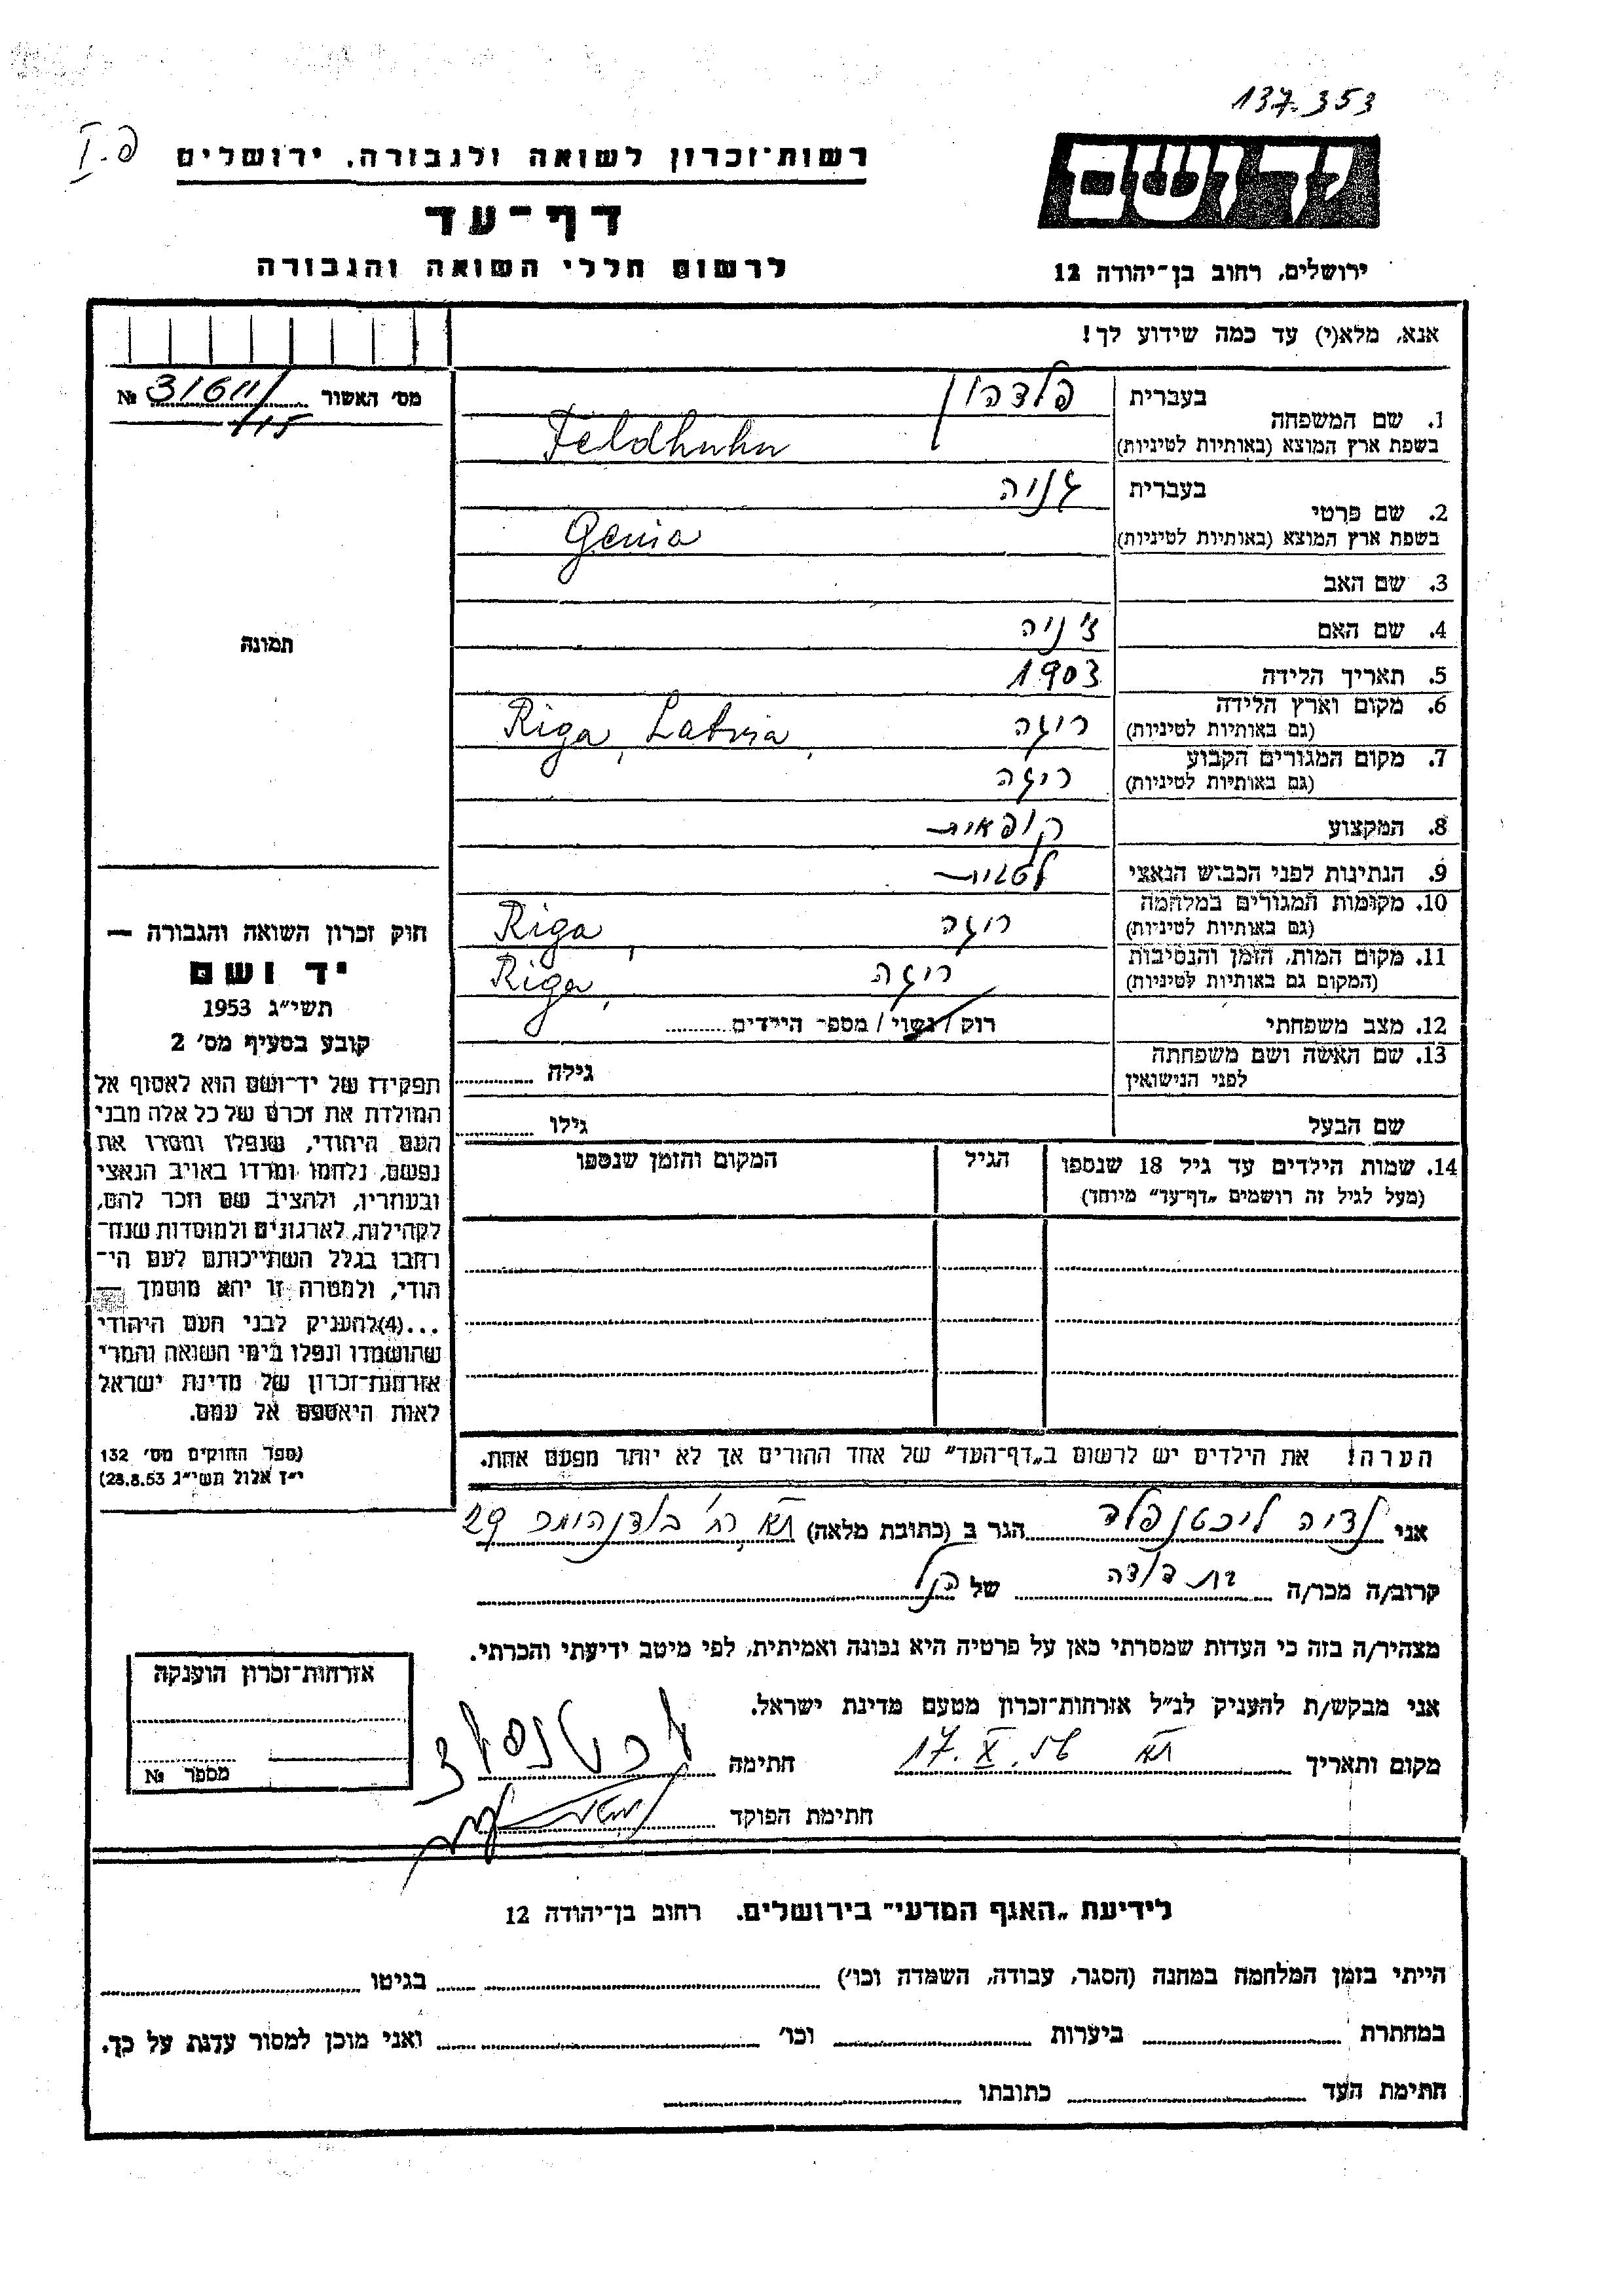 137.353
פ.I
רשות־זכרון לשואה ולגבורה, ירושלים
יד ושם
דף־עד
לרשום חללי השואה והגבורה
ירושלים, רחוב בן־יהודה 12
אנא, מלא(י) עד כמה שידוע לך!
מס׳ האשור 31611/ №
115
תמונה
1. שם המשפחה
בעברית פלדהון
בשפת ארץ המוצא (באותיות לטיניות) Feldhuhn
2. שם פרטי
בעברית גניה
בשפת ארץ המוצא (באותיות לטיניות) Genia
3. שם האב
4. שם האם ז׳ניה
5. תאריך הלידה 1903
6. מקום וארץ הלידה ריגה Riga, Latvia,
(גם באותיות לטיניות)
7. מקום המגורים הקבוע ריגה
(גם באותיות לטיניות)
8. המקצוע קופאית
9. הנתינות לפני הכבוש הנאצי לטבית
10. מקומות המגורים במלחמה ריגה Riga,
(גם באותיות לטיניות)
11. מקום המות, הזמן והנסיבות ריגה Riga,
(המקום גם באותיות לטיניות)
12. מצב משפחתי רווק / נשוי / מספר הילדים
13. שם האשה ושם משפחתה גילה
לפני הנישואין
שם הבעל גילו
14. שמות הילדים עד גיל 18 שנספו הגיל המקום והזמן שנספו
(מעל לגיל זה רושמים „דף־עד״ מיוחד)
הערה! את הילדים יש לרשום ב„דף־העד״ של אחד ההורים אך לא יותר מפעם אחת.
חוק זכרון השואה והגבורה —
יד ושם
תשי״ג 1953
קובע בסעיף מס׳ 2
תפקידו של יד־ושם הוא לאסוף אל
המולדת את זכרם של כל אלה מבני
העם היהודי, שנפלו ומסרו את
נפשם, נלחמו ומרדו באויב הנאצי
ובעוזריו, ולהציב שם וזכר להם,
לקהילות, לארגונים ולמוסדות שנח־
רבו בגלל השתייכותם לעם הי־
הודי, ולמטרה זו יהא מוסמך —
...(4) להעניק לבני העם היהודי
שהושמדו ונפלו בימי השואה והמרי
אזרחות־זכרון של מדינת ישראל
לאות היאספם אל עמם.
(ספר החוקים מס׳ 132
י״ז אלול תשי״ג 28.8.53)
אני נדיה ליכטנפלד הגר ב (כתובת מלאה) תא רח׳ 29
קרוב/ה מכר/ה בת דודה של הנ״ל
מצהיר/ה בזה כי העדות שמסרתי כאן על פרטיה היא נכונה ואמיתית, לפי מיטב ידיעתי והכרתי.
אני מבקש/ת להעניק לנ״ל אזרחות־זכרון מטעם מדינת ישראל.
מקום ותאריך תא 17.X.56 חתימה
חתימת הפוקד
אזרחות־זכרון הוענקה
מספר №
לידיעת „האגף המדעי״ בירושלים, רחוב בן־יהודה 12
הייתי בזמן המלחמה במחנה (הסגר, עבודה, השמדה וכו׳) בגיטו
במחתרת ביערות וכו׳ ואני מוכן למסור עדות על כך.
חתימת העד כתובתו